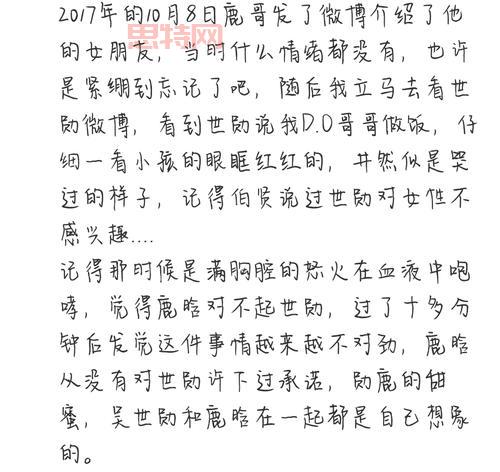 2017年的10月8日鹿哥发了微博介绍了他
的女朋友，当时什么情绪都没有，也许
是紧绷到忘记了吧，随后我立马去看世
勋微博，看到世勋说我D.O哥哥做饭，仔
细一看小孩的眼眶红红的，井然似是哭
过的样子，记得伯贤说过世勋对女性不
感兴趣....
记得那时候是满胸腔的怒火在血液中咆
哮，觉得鹿晗对不起世勋，过了十多分
钟后发觉这件事情越来越不对劲，鹿晗
从没有对世勋许下过承诺，勋鹿的甜
蜜，吴世勋和鹿晗在一起都是自己想象
的。
思特网